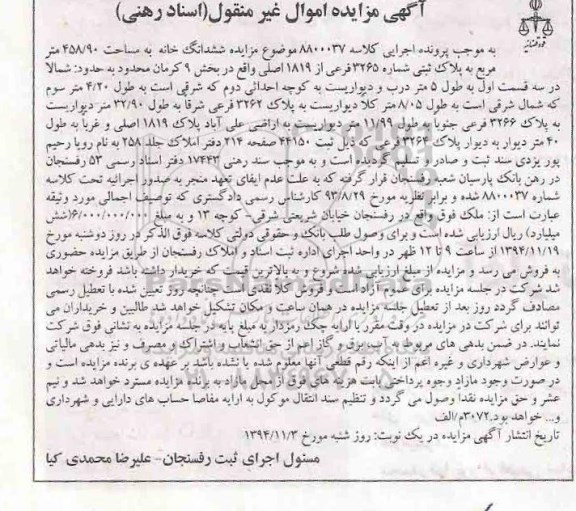 آگهی مزایده اموال غیر منقول(اسناد رهنی)
قوه قضائیه
به موجب پرونده اجرایی کلاسه ۸۸۰۰۰۳۷ موضوع مزایده ششدانگ خانه به مساحت ۴۵۸/۹۰ متر
مربع به پلاک ثبتی شماره ۳۲۶۵ فرعی از ۱۸۱۹ اصلی واقع در بخش ۹ کرمان محدود به حدود: شمالا
در سه قسمت اول به طول ۵ متر درب و دیواریست به کوچه احداثی دوم که شرقی است به طول ۴/۲۰ متر سوم
که شمال شرقی است به طول ۸/۰۵ متر کلا دیواریست به پلاک ۳۲۶۲ فرعی شرقا به طول ۳۲/۹۰ متر دیواریست
به پلاک ۳۲۶۶ فرعی جنوبا به طول ۱۱/۹۹ متر دیواریست به اراضی علی آباد پلاک ۱۸۱۹ اصلی و غربا به طول
۴۰ متر دیوار به دیوار پلاک ۳۲۶۴ فرعی که ذیل ثبت ۴۴۱۵۰ صفحه ۲۱۴ دفتر املاک جلد ۲۵۸ به نام رویا رحیم
پور یزدی سند ثبت و صادر و تسلیم گردیده است و به موجب سند رهنی ۱۷۴۴۳ دفتر اسناد رسمی ۵۳ رفسنجان
در رهن بانک پارسیان شعبه رفسنجان قرار گرفته که به علت عدم ایفای تعهد منجر به صدور اجرائیه تحت کلاسه
شماره ۸۸۰۰۰۳۷ شده و برابر نظریه مورخ ۹۳/۸/۲۹ کارشناس رسمی دادگستری که توصیف اجمالی مورد وثیقه
عبارت است از: ملک فوق واقع در رفسنجان خیابان شریعتی شرقی- کوچه ۱۳ و به مبلغ ۶/۰۰۰/۰۰۰/۰۰۰(شش
میلیارد) ریال ارزیابی شده است و برای وصول طلب بانک و حقوقی دولتی کلاسه فوق الذکر در روز دوشنبه مورخ
۱۳۹۴/۱۱/۱۹ از ساعت ۹ تا ۱۲ ظهر در واحد اجرای اداره ثبت اسناد و املاک رفسنجان از طریق مزایده حضوری
به فروش می رسد و مزایده از مبلغ ارزیابی شده شروع و به بالاترین قیمت که خریدار داشته باشد فروخته خواهد
شد شرکت در جلسه مزایده برای عموم آزاد است و فروش کلا نقدی است چنانچه روز تعیین شده با تعطیل رسمی
مصادف گردد روز بعد از تعطیل جلسه مزایده در همان ساعت و مکان تشکیل خواهد شد طالبین و خریداران می
توانند برای شرکت در مزایده در وقت مقرر با ارایه چک رمزدار به مبلغ پایه در جلسه مزایده به نشانی فوق شرکت
نمایند. در ضمن بدهی های مربوط به آب، برق و گاز اعم از حق انشعاب و اشتراک و مصرف و نیز بدهی مالیاتی
و عوارض شهرداری و غیره اعم از اینکه رقم قطعی آنها معلوم شده یا نشده باشد بر عهده ی برنده مزایده است و
در صورت وجود مازاد وجوه پرداختی بابت هزینه های فوق از محل مازاد به برنده مزایده مسترد خواهد شد و نیم
عشر و حق مزایده نقدا وصول می گردد و تنظیم سند انتقال موکول به ارایه مفاصا حساب های دارایی و شهرداری
و... خواهد بود.۳۰۷۲م/الف
تاریخ انتشار آگهی مزایده در یک نوبت: روز شنبه مورخ ۱۳۹۴/۱۱/۳
مسئول اجرای ثبت رفسنجان- علیرضا محمدی کیا